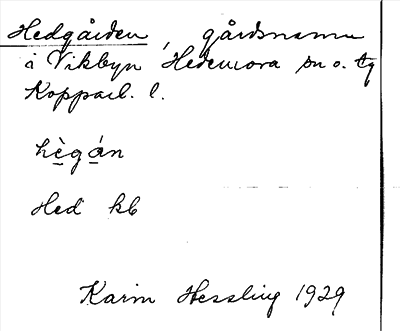 Hedgården, gårdsnamn
i Vikbyn Hedemora sn o. tg
Kopparb. l.
hègán
Hed kb
Karin Hessling 1929